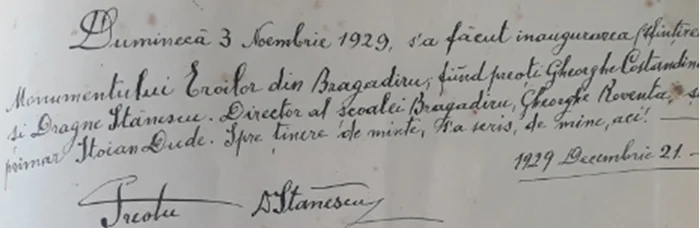 Duminecă 3 Noembrie 1929, s'a făcut inaugurarea (sfințirea
Monumentului Eroilor din Bragadiru, fiind preoți Gheorghe Costandine
și Dragne Stănescu. Director al școalei Bragadiru, Gheorghe Roventa, și
primar Stoian Dude. Spre ținere de minte, s'a scris, de mine, aci. —
1929 Decembrie 21. —
Preotu D Stănescu